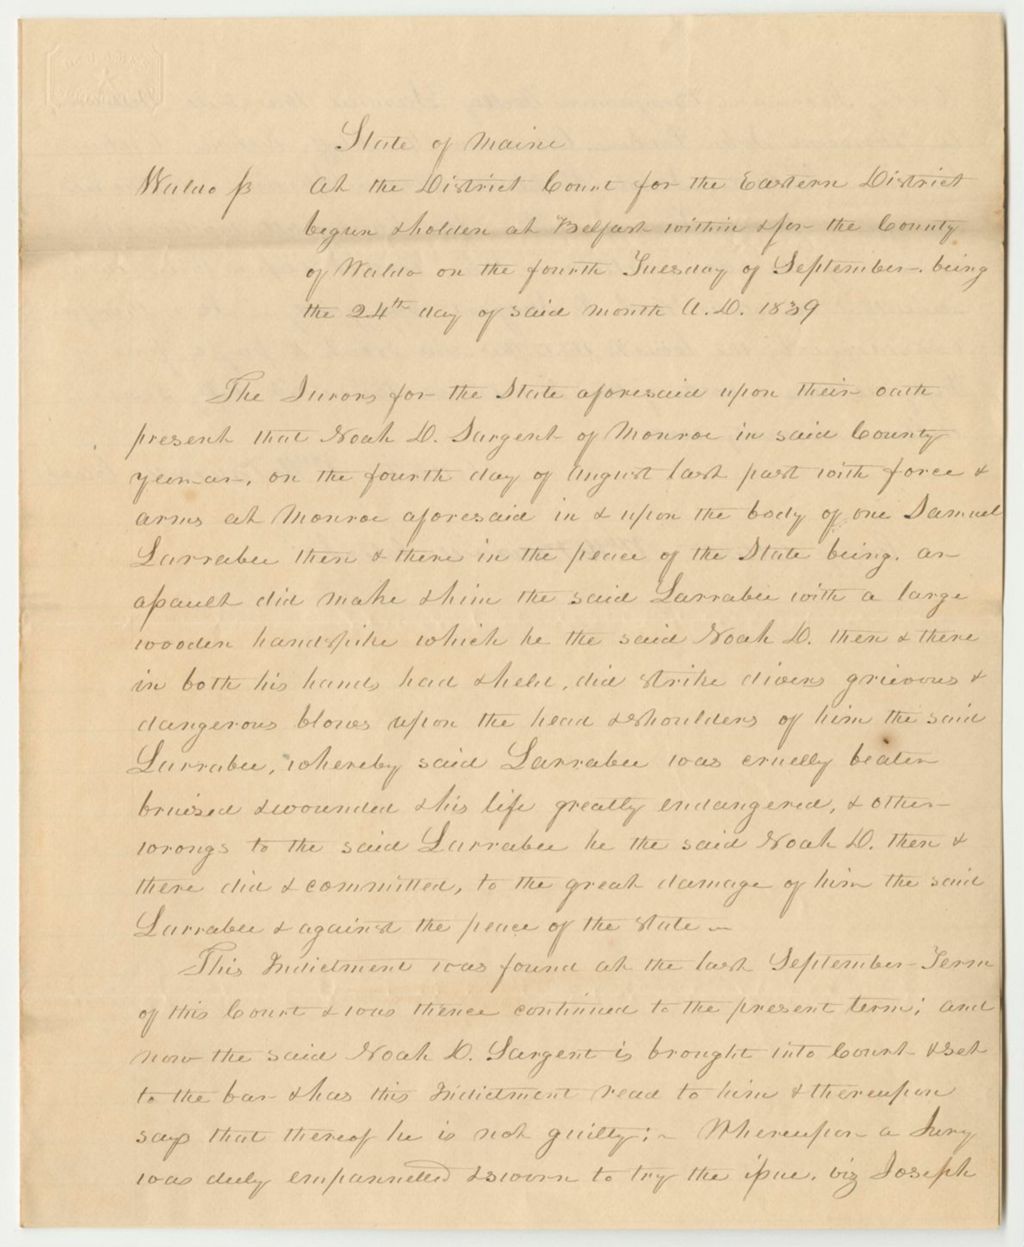 State of Maine
Waldo ss At the District Court for the Eastern District
begun & holden at Belfast within & for the County
of Waldo on the fourth Tuesday of September, being
the 24th day of said month A.D. 1839
The Jurors for the State aforesaid upon their oath
present that Noah D. Sargent of Monroe in said County
yeoman, on the fourth day of August last past with force &
arms at Monroe aforesaid in & upon the body of one Samuel
Larrabee then & there in the peace of the State being, an
assault did make & him the said Larrabee with a large
wooden handspike which he the said Noah D. then & there
in both his hands had & held, did strike divers grievous &
dangerous blows upon the head & shoulders of him the said
Larrabee, whereby said Larrabee was cruelly beaten
bruised & wounded & his life greatly endangered, & other
wrongs to the said Larrabee he the said Noah D. then &
there did & committed, to the great damage of him the said
Larrabee & against the peace of the State —
This Indictment was found at the last September Term
of this Court & was thence continued to the present term; and
now the said Noah D. Sargent is brought into Court & set
to the bar & has this Indictment read to him & thereupon
says that thereof he is not guilty: - Whereupon a Jury
was duly empannelled & sworn to try the issue, viz Joseph